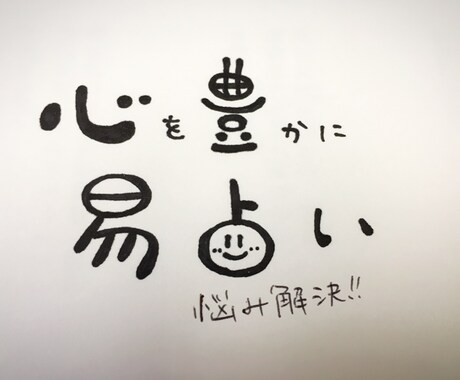 心を豊かに
易占い
悩み解決!!